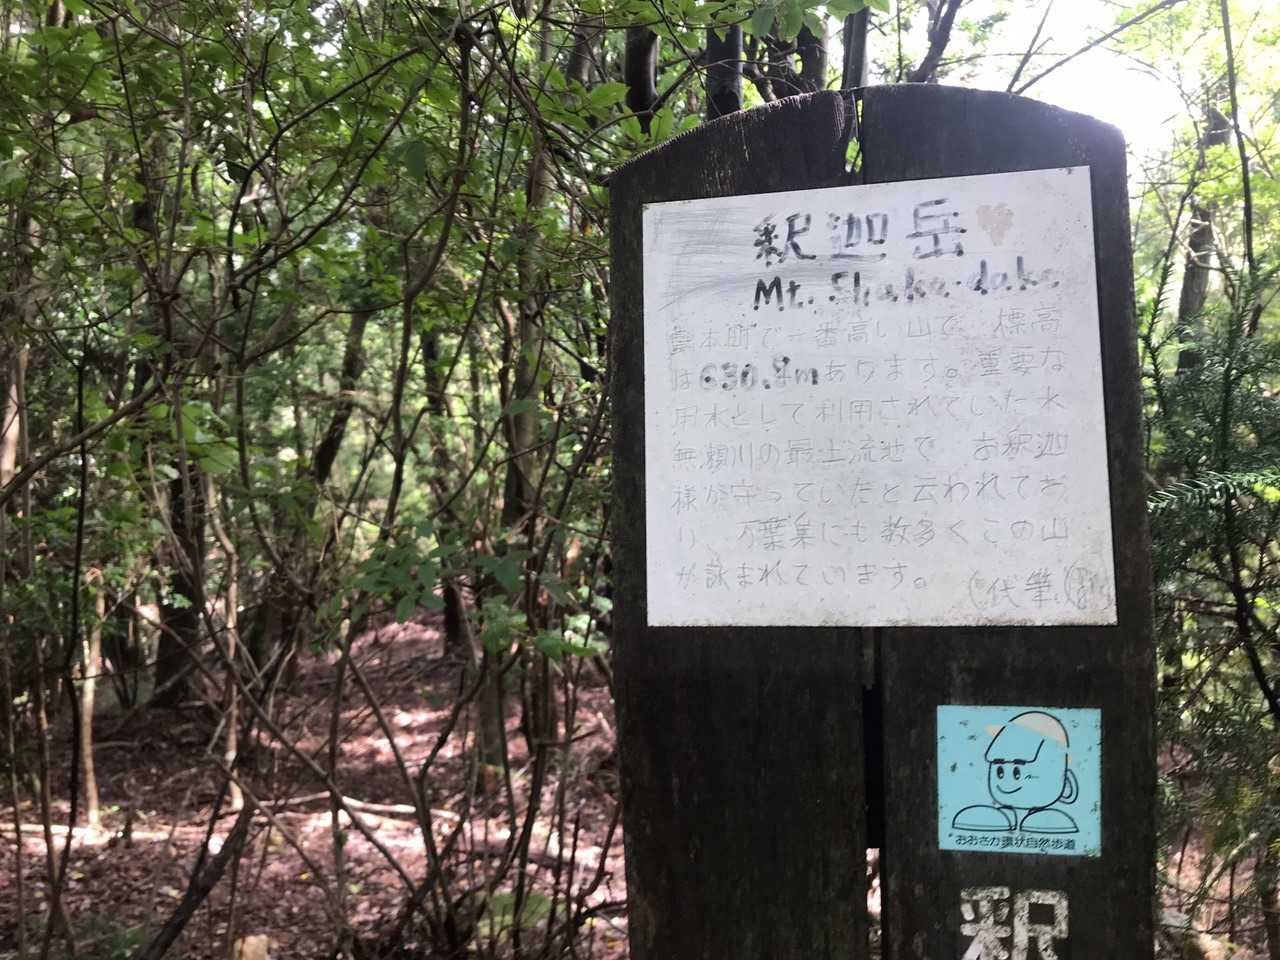 釈迦岳
Mt. Shaka-dake
島本町で一番高い山で、標高
は630.8mあります。重要な
用水として利用されていた水
無瀬川の最上流池で、お釈迦
様が守っていたと云われてお
り、万葉集にも数多くこの山
が詠まれています。(代筆)
おおさか環状自然歩道
釈